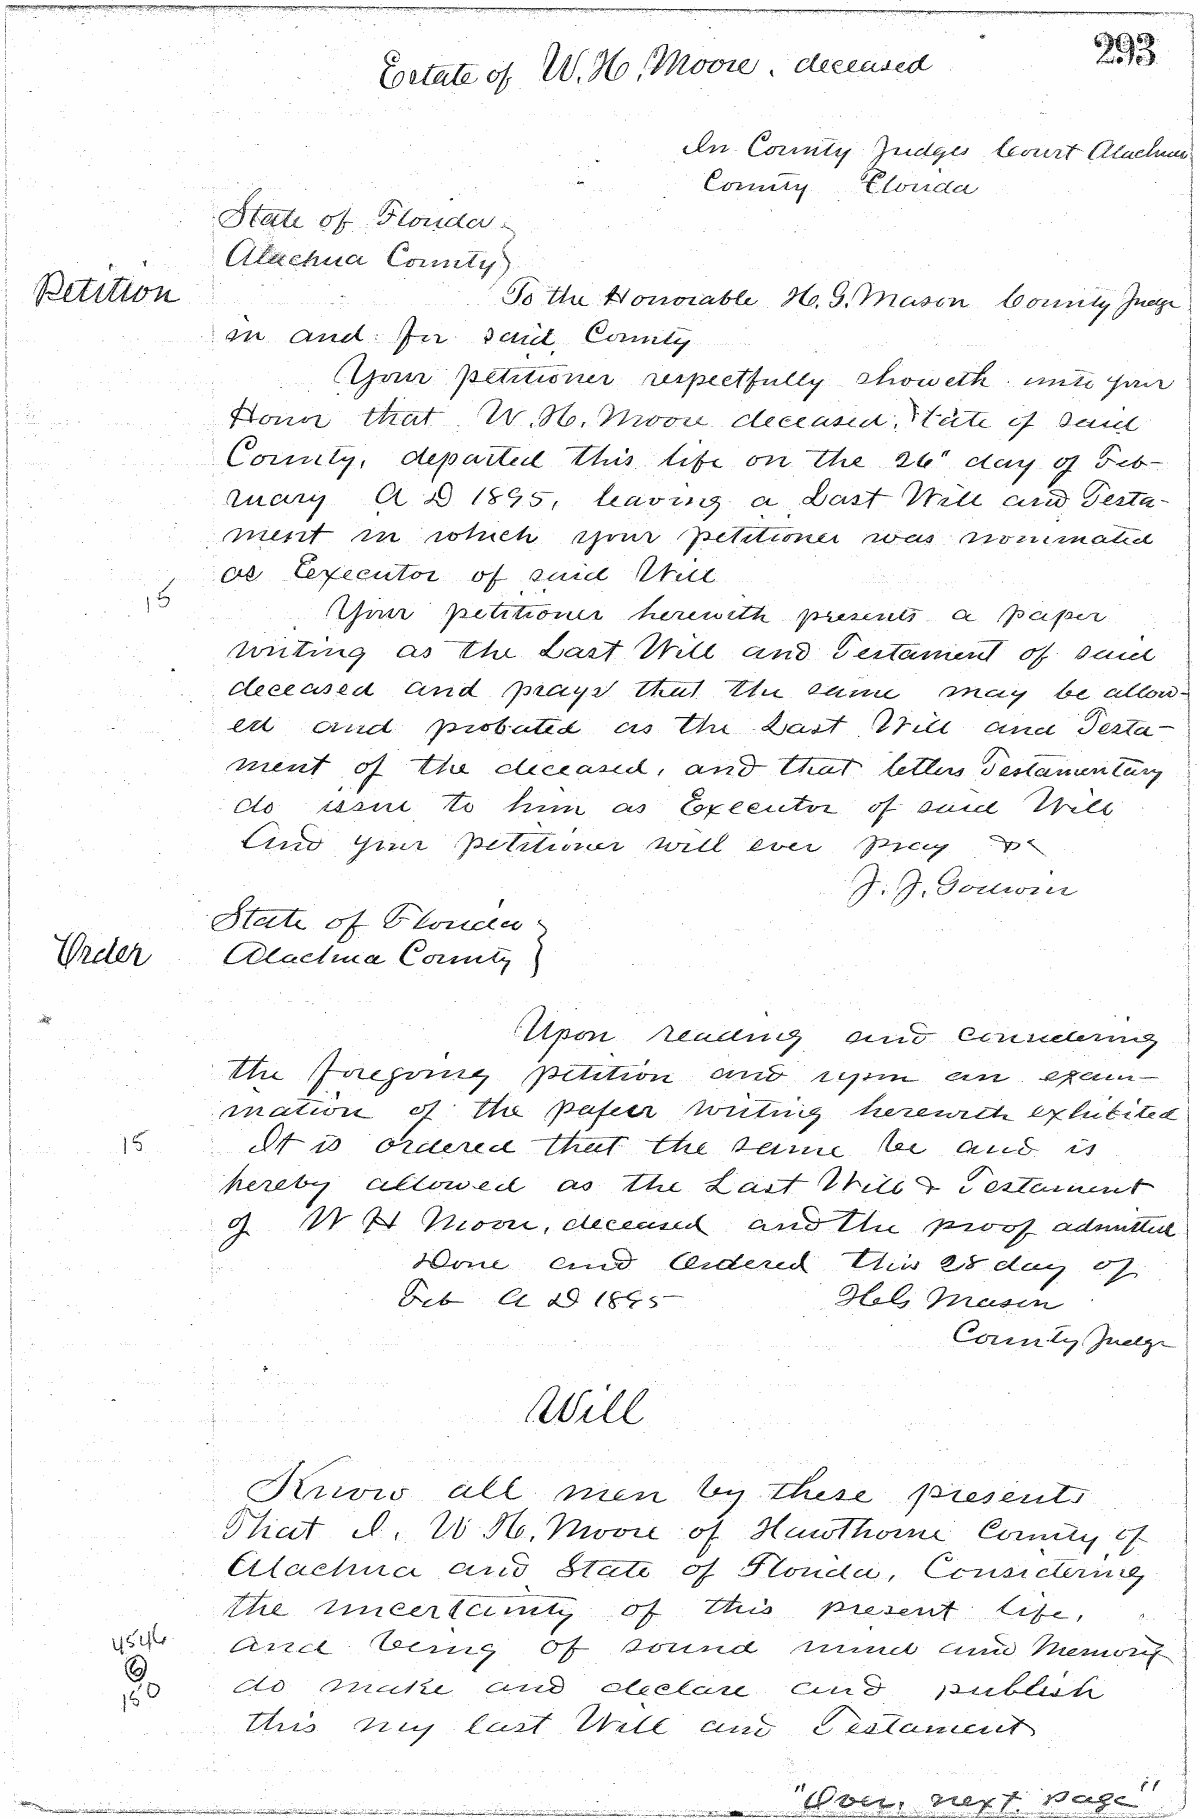 293
Estate of W. H. Moore, deceased
In County Judges Court Alachua
County Florida
State of Florida
Alachua County
Petition
To the Honorable H. G. Mason County Judge
in and for said County
Your petitioner respectfully showeth unto your
Honor that W. H. Moore deceased, late of said
County, departed this life on the 26" day of Feb-
ruary A D 1895, leaving a Last Will and Testa-
ment in which your petitioner was nominated
as Executor of said Will
15
Your petitioner herewith presents a paper
writing as the Last Will and Testament of said
deceased and prays that the same may be allow-
ed and probated as the Last Will and Testa-
ment of the deceased, and that letters Testamentary
do issue to him as Executor of said Will
And your petitioner will ever pray &c
J. J. Godwin
State of Florida
Order
Alachua County
Upon reading and considering
the foregoing petition and upon an exam-
ination of the paper writing herewith exhibited
15
It is ordered that the same be and is
hereby allowed as the Last Will & Testament
of W H Moore, deceased and the proof admitted
Done and Ordered this 28 day of
Feb A D 1895 H G Mason
County Judge
Will
Know all men by these presents
That I, W H. Moore of Hawthorne County of
Alachua and State of Florida, Considering
the uncertainty of this present life,
4546
and being of sound mind and Memory
6
do make and declare and publish
150
this my last Will and Testament
"Over, next page"